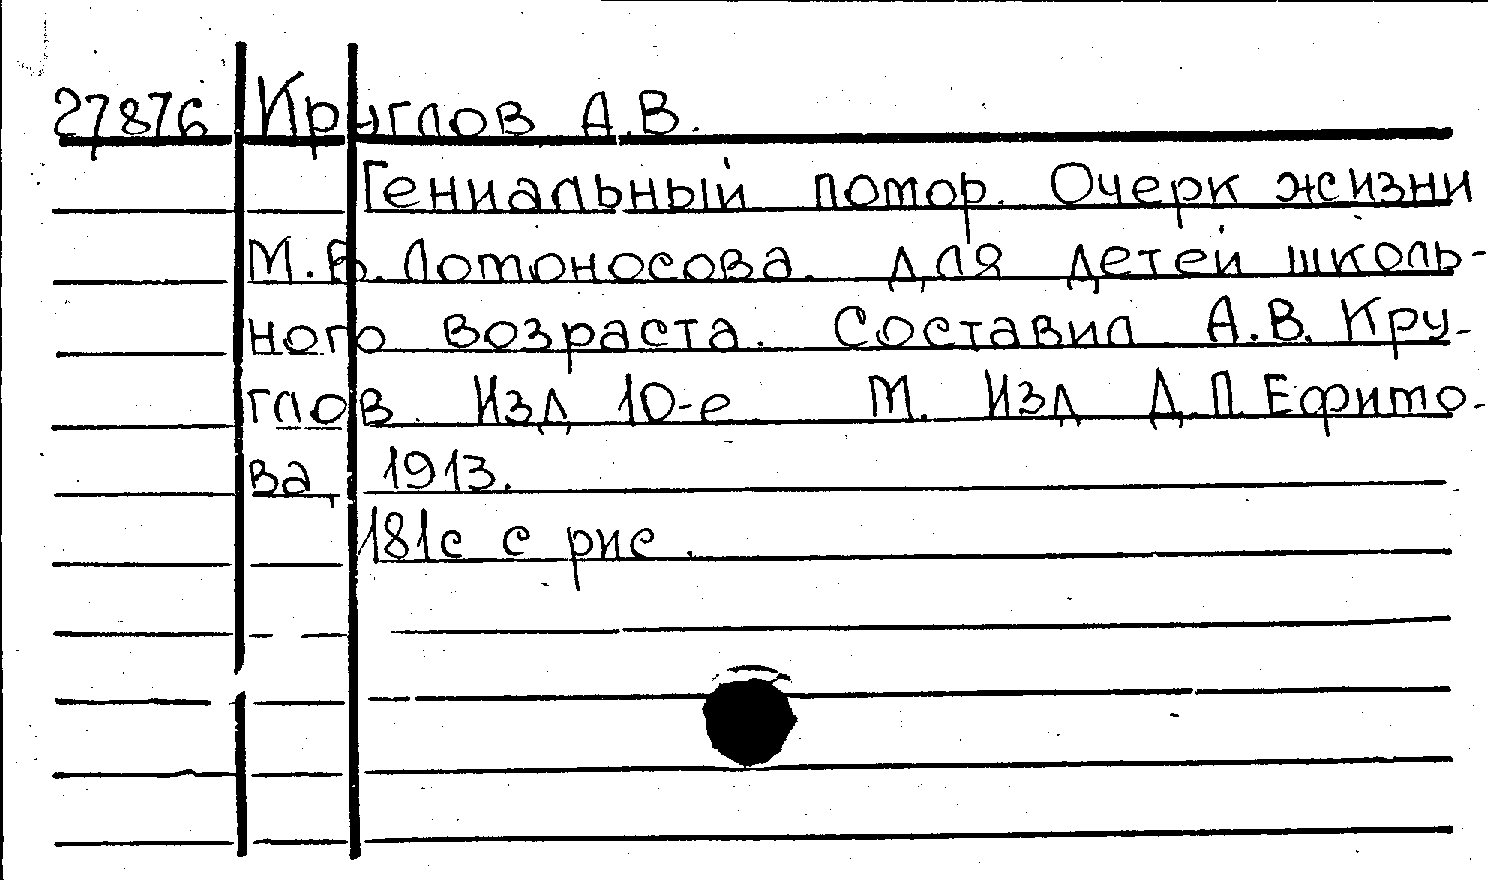 27876 Круглов А.В.
Гениальный помор. Очерк жизни
М.В. Ломоносова. Для детей школь-
ного возраста. Составил А.В. Кру-
глов. Изд 10-е М. Изд Д.П. Ефимо-
ва, 1913.
181с с рис.